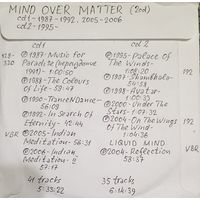 MIND OVER MATTER (2cd)
cd1-1987-1992, 2005-2006
cd2-1995-
cd1
128-320
℗1987-Music For
Paradise (переиздание
1991)-1:00:50
℗1988-The Colours
of Life-59:47
℗1990-TranceNDance-
56:09
℗1992-In Search Of
Eternity-42:44
VBR
℗2005-Indian
Meditation-56:31
℗2006-Indian
Meditation-II
57:17
41 tracks
5:33:22
cd 2
℗1995-Palace Of
The Winds-
1:08:20
192
℗1997-Shambhala-
54:58
℗1998-Avatar-
1:00:33
℗2000-Under The
Stars-1:07:32
℗2001-On The Wings
Of The Wind-
1:04:36
192
LIQUID MIND
VBR
℗2004-Reflection
58:37
35 tracks
6:14:39